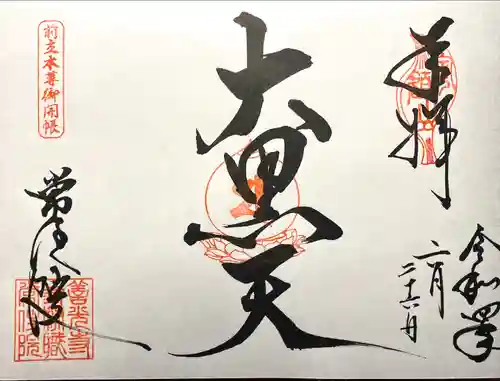 奉拝
令和四年
六月
二十六日
大黒天
前立本尊御開帳
善光寺